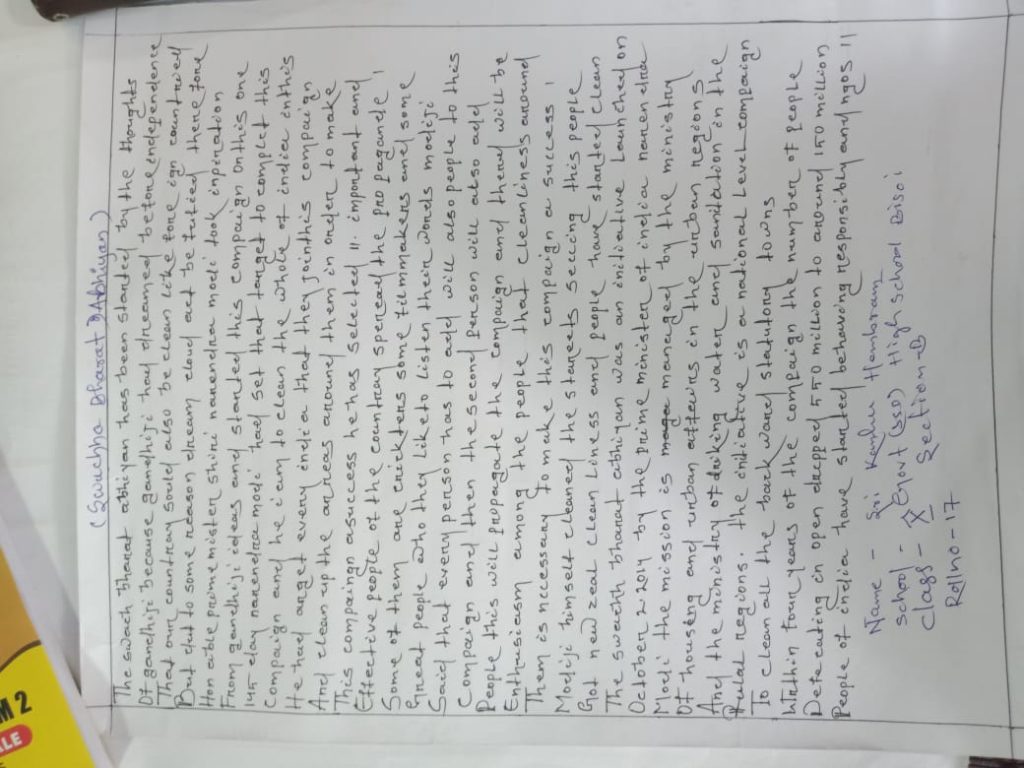 (Swachha Bharat Abhiyan)
The swach bharat abhiyan has been started by the thoughts
Of gandhiji because gandhiji had dreamed before independence
That our country sould also be clean like fore ign countried
But dut to some reason dream cloud act be futied there fore
Hon able prime mister shiri narendra modi took inpiration
From gandhiji ideas and started this compaign on this one
145 day narendra modi had set that target to complect this
Compaign and he iam to clean the whole of india in this
He had arget every india that they join this compaign
And clean up the arreas around them in order to make
This compaingn a success he has selected 11 important and
Effective people of the country spered the pro pagande,
Some of them are crickters some filmmakers and some
Great people who they like to listen their words modiji
Said that every person has to add will also people to this
Compaign and then the second person will also add
People this will propagate the compaign and thery will be
Enthusicasm among the people that cleanliness around
Them is necessary to make this compaign a success,
Modiji himself cleaned the starcets seccing this people
Got new zeal clean liness and people have started clean
The swachh bharat abhiyan was an initiative Launched on
October 2 2014 by the prime minister of india naren dra
Modi the mission is managed by the ministry
Of housing and urban affairs in the urban regions.
And the ministry of driking water and sanitation in the
Rular regions. the initiative is a national level campaign
To clean all the back ward statutory towns
Within four years of the compaign the number of people
Defecating in open dropped 550 million to around 150 million
People of india have started behaving responsibly and ngos 11
Name - Sri Kanhu Hembram
School - Govt (SSD) High School Bisoi
Class - X Section - B
Roll no - 17
M 2
ALE